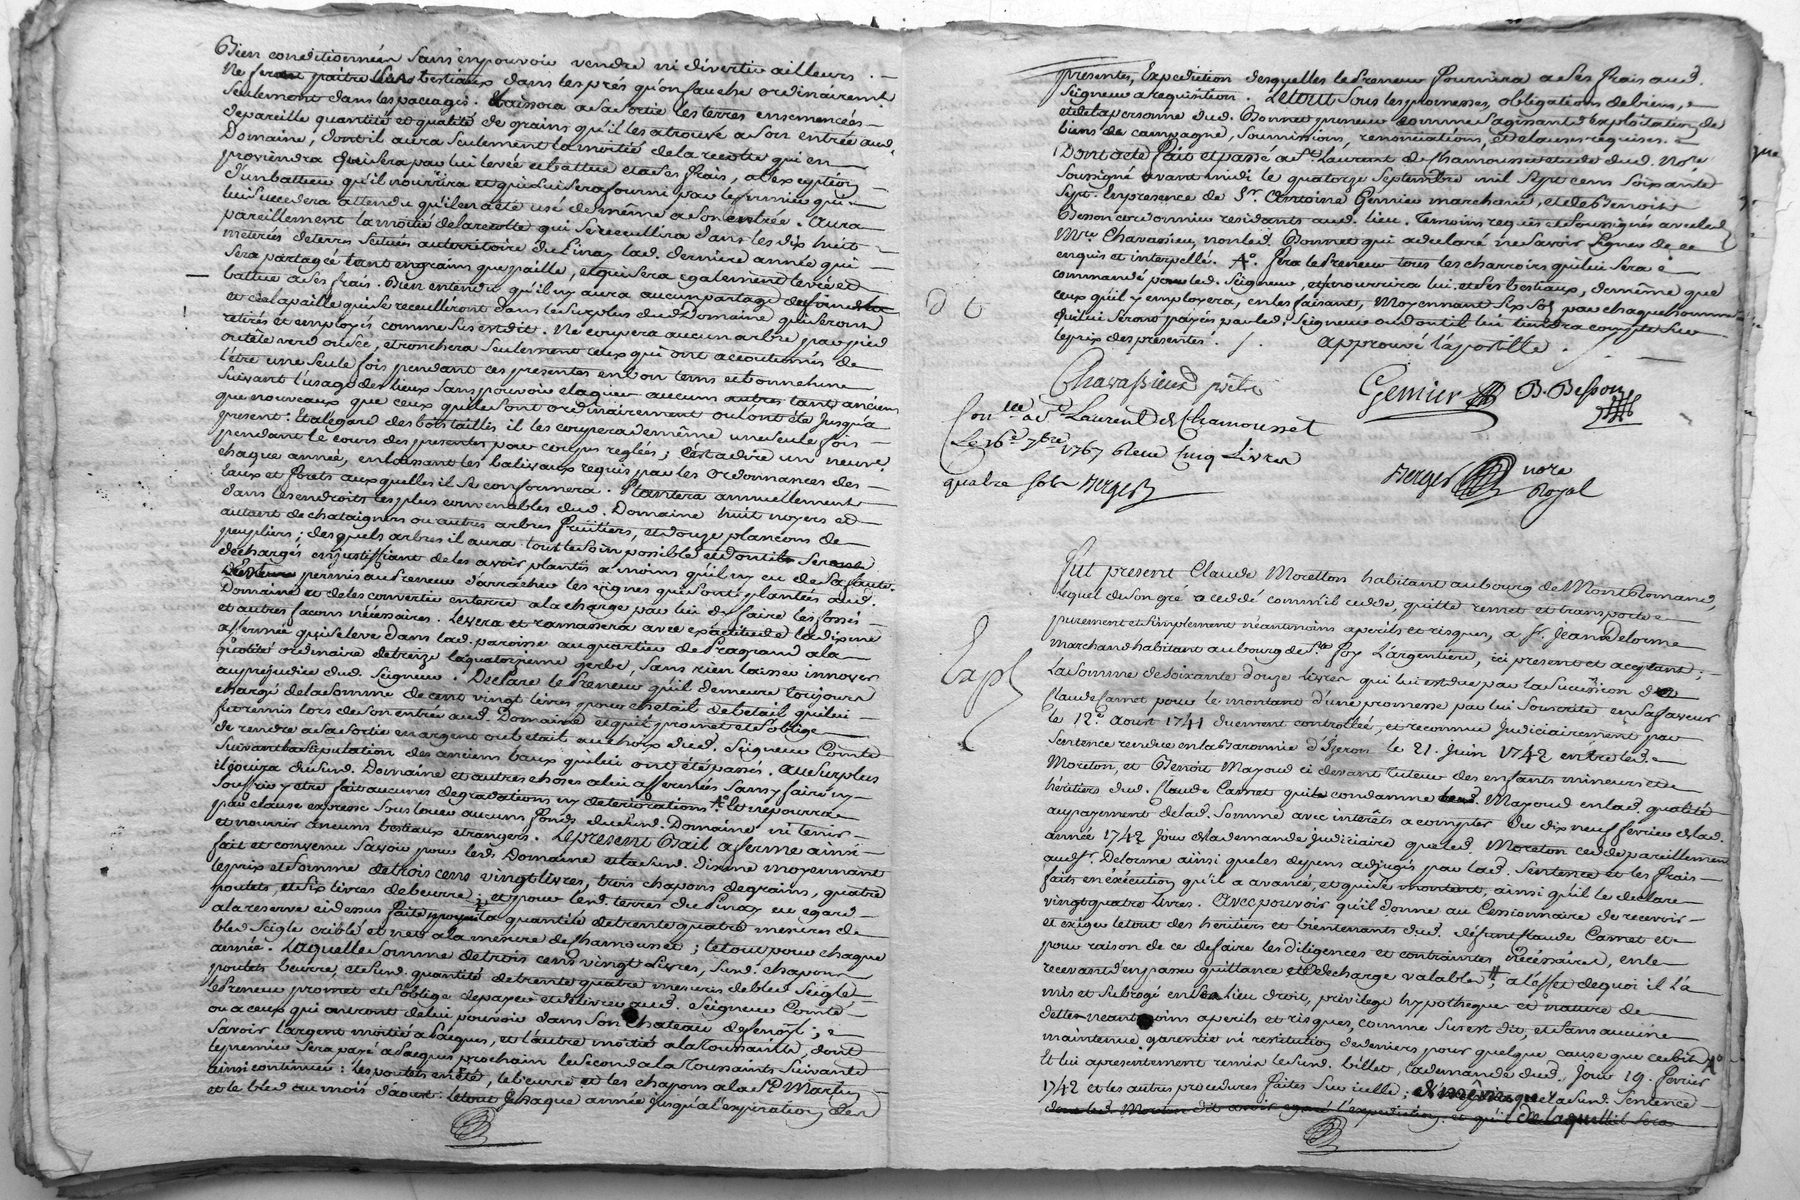 Bien conditionnées sans en pouvoir vendre ni divertir ailleurs. —
Ne fera paitre bestiaux dans les prés qu'on fauche ordinairement
seulement dans les pacages. Laissera a sa sortie les terres ensemencées —
de pareille quantité et qualité de grains qu'il les a trouvé a son entrée aud.
Domaine, dont il aura seulement la moitié de la recolte qui en
proviendra qui sera par lui levée et battue et a ses frais, a l'exception
d'un batteur qu'il nourrira et qui lui sera fourni par le fermier qui
lui succedera attendu qu'il en a été usé de même a son entrée. Aura
pareillement la moitié de la recolte qui se recuellira dans les dix huit
meterés de terres scitués au territoire du Pinay lad. derniere année qui —
sera partagée tant en grains que paille, et qui sera egalement levée et
battue a ses frais. Bien entendu qu'il n'y aura aucun partage de foin
et de la paille qui se recuelliront dans le surplus dud. Domaine qui seront
retirés et employés comme sus est dit. Ne coupera aucun arbre par pied
ou tête verd ou sec, et tronchera seulement ceux qui ont accoutumés de
l'être une seule fois pendant ces presentes en bon tems et bonne lune
suivant l'usage des lieux sans pouvoir elaguer aucuns autres tant anciens
que nouveaux que ceux qui le sont ordinairement ou l'ont été jusqu'a
present: Et a l'egard des bois taillis il les coupera de même une seule fois
pendant le cours des presentes par coupes reglées; c'est a dire un neuv.e
chaque année, en laissant les balivaux requis par les ordonnances des
Eaux et forets auxquelles il se conformera. Plantera annuellement
dans les endroits les plus convenables dud. Domaine huit noyers et
autant de chataigners ou autres arbres fruitiers, et douze plancons de
peupliers; desquels arbres il aura tout le soin possible et dont il sera
dechargés en justiffiant de les avoir plantés a moins qu'il n'y eu de sa faute.
permis au Preneur d'arracher les vignes qui sont plantées aud.
Domaine et de les convertir en terre a la charge par lui d'y faire les fossés
et autres facons nécessaires. Levera et ramassera avec exactitude la dixme
affermée qui se leve dans lad. paroisse au quartier de Pragrand a la
quotité ordinaire de treize la quatorzieme gerbe, sans rien laisser innover
au prejudice dud. Seigneur. Declare le Preneur qu'il demeure toujours
chargé de la somme de cent vingt livres pour chetail de betail qui lui
fut remis lors de son entrée aud. Domaine et qu'il promet et s'oblige
de rendre a sa sortie en argent ou betail au choix dud. Seigneur Comte
suivant la stipulation des anciens baux qui lui ont été passés. Au surplus
il jouira du susd. Domaine et autres choses a lui affermées sans y faire ny
souffrir y etre fait aucunes degradations ny deteriorations A.o Et ne pourra
par clause expresse sous louer aucuns fonds du susd. Domaine ni tenir —
et nourrir aucuns bestiaux etrangers. Le present Bail a ferme ainsi
fait et convenu savoir pour led. Domaine et la susd. dixme moyennant
le prix et somme de trois cens vingt livres, trois chapons de grains, quatre
poulets, et six livres de beurre; et pour lesd. terres du Pinay eu egard —
a la reserve ci dessus faite moyent la quantité de trente quatre mesures de
bled seigle crible et net a la mesure de Chamousset; le tout pour chaque
année. Laquelle somme de trois cens vingt livres, susd. chapons
poulets beurre, et susd. quantité de trente quatre mesures de bled seigle
le Preneur promet et s'oblige de payer et delivrer aud. Seigneur Comte
ou a ceux qui auront de lui pouvoir dans son chateau de ;
savoir l'argent moitié a Pacques, et l'autre moitié a la Toussaints, dont
le premier sera payé a Pacques prochain le second a la Toussaints suivante
ainsi continuer: les poulets en été, le beurre et les chapons a la St Martin
et le bled au mois d'aoust. le tout chaque année jusqu'a l'expiration des
presentes, Expedition desquelles le Preneur fournira a ses frais aud.
Seigneur a requisition. Le tout sous les promesses, obligations de biens,
et de la personne dud. Bonnet preneur comme s'agissant d'exploitation de
biens de campagne, soumissions, renonciations, et clauses requises.
Dont acte Fait et passé a St Laurent de Chamousset etude dud. Nore
soussigné avant midi le quatorze septembre mil sept cens soixante
sept. En presence de Sr. Antoine Gemier marchand, et de Benoit
Besson cordonnier residants aud. lieu. Temoins requis et soussignés avec led.
Mre Chavassieu, non led. Bonnet qui a declaré ne savoir signer de ce
enquis et interpellé. A.o fera le Preneur tous les charrois qui lui sera
commandé par led. Seigneur, et nourrira lui, et ses bestiaux, de même que
ceux qu'il y employera, en les faisant, moyennant six sols par chaque
qui lui seront payés par led. Seigneur ou dont il lui tiendra compte sur
le prix des presentes. approuvé l'apostille.
Chavassieux prêtre
Gemier B. Besson
Con.lee a St Laurent de Chamousset
Le 16e 7bre 1767 Receu Cinq Livres
quatre sols Berger
Berger nore
Royal
Fut present Claude Moretton habitant au bourg de Montromand,
lequel de son gré a cedé comm'il cedde, quitte remet et transporte
purement et simplement néantmoins a perils et risques, a Sr. Jean Delorme
marchand habitant au bourg de Ste Foy L'argentiere, ici present et acceptant;
Exp
La somme de soixante douze livres qui lui est due par la succession de
Claude Carret pour le montant d'une promesse par lui souscrite en sa faveur
le 12.e aoust 1741 duement controllée, et reconnue judiciairement par
sentence rendue en la Baronnie d'Izeron le 21. Juin 1742 entre led.
Moreton, et Benoit Mazoud ci devant tuteur des enfants mineurs et
héritiers dud. Claude Carret qui condamne led. Mazoud en lad. qualité
au payement de lad. somme avec interêts a compter du dix neuf fevrier de lad.
année 1742 jour de la demande judiciaire que led. Moreton cedde pareillement
aud Sr. Delorme ainsi que les depens adjugés par lad. Sentence et les frais —
faits en exécution qu'il a avancé, et qui se montent, ainsi qu'il le declare
vingt quatre livres. Avec pouvoir qu'il donne au Cessionnaire de recevoir —
et exiger le tout des heritiers et bientenants dud. défunt Claude Carret et
pour raison de ce de faire les diligences et contraintes nécessaires, en le
recevant d'en passer quittance et decharge valable, a l'effet de quoi il l'a
mis et subrogé en son lieu droit, privilege hypotheque et nature de
dette neantmoins a perils et risques, comme sus est dit, et sans aucune
maintenue garentie ni restitution de deniers pour quelque cause que ce soit A.o
Et lui a presentement remis le susd. billet, la demande dud. Jour 19. Fevrier
1742 et les autres procedures faites sur icelle; la susd. Sentence
dont led. Moreton dit avoir egaré l'expedition, et qu'il de laquelle il sera